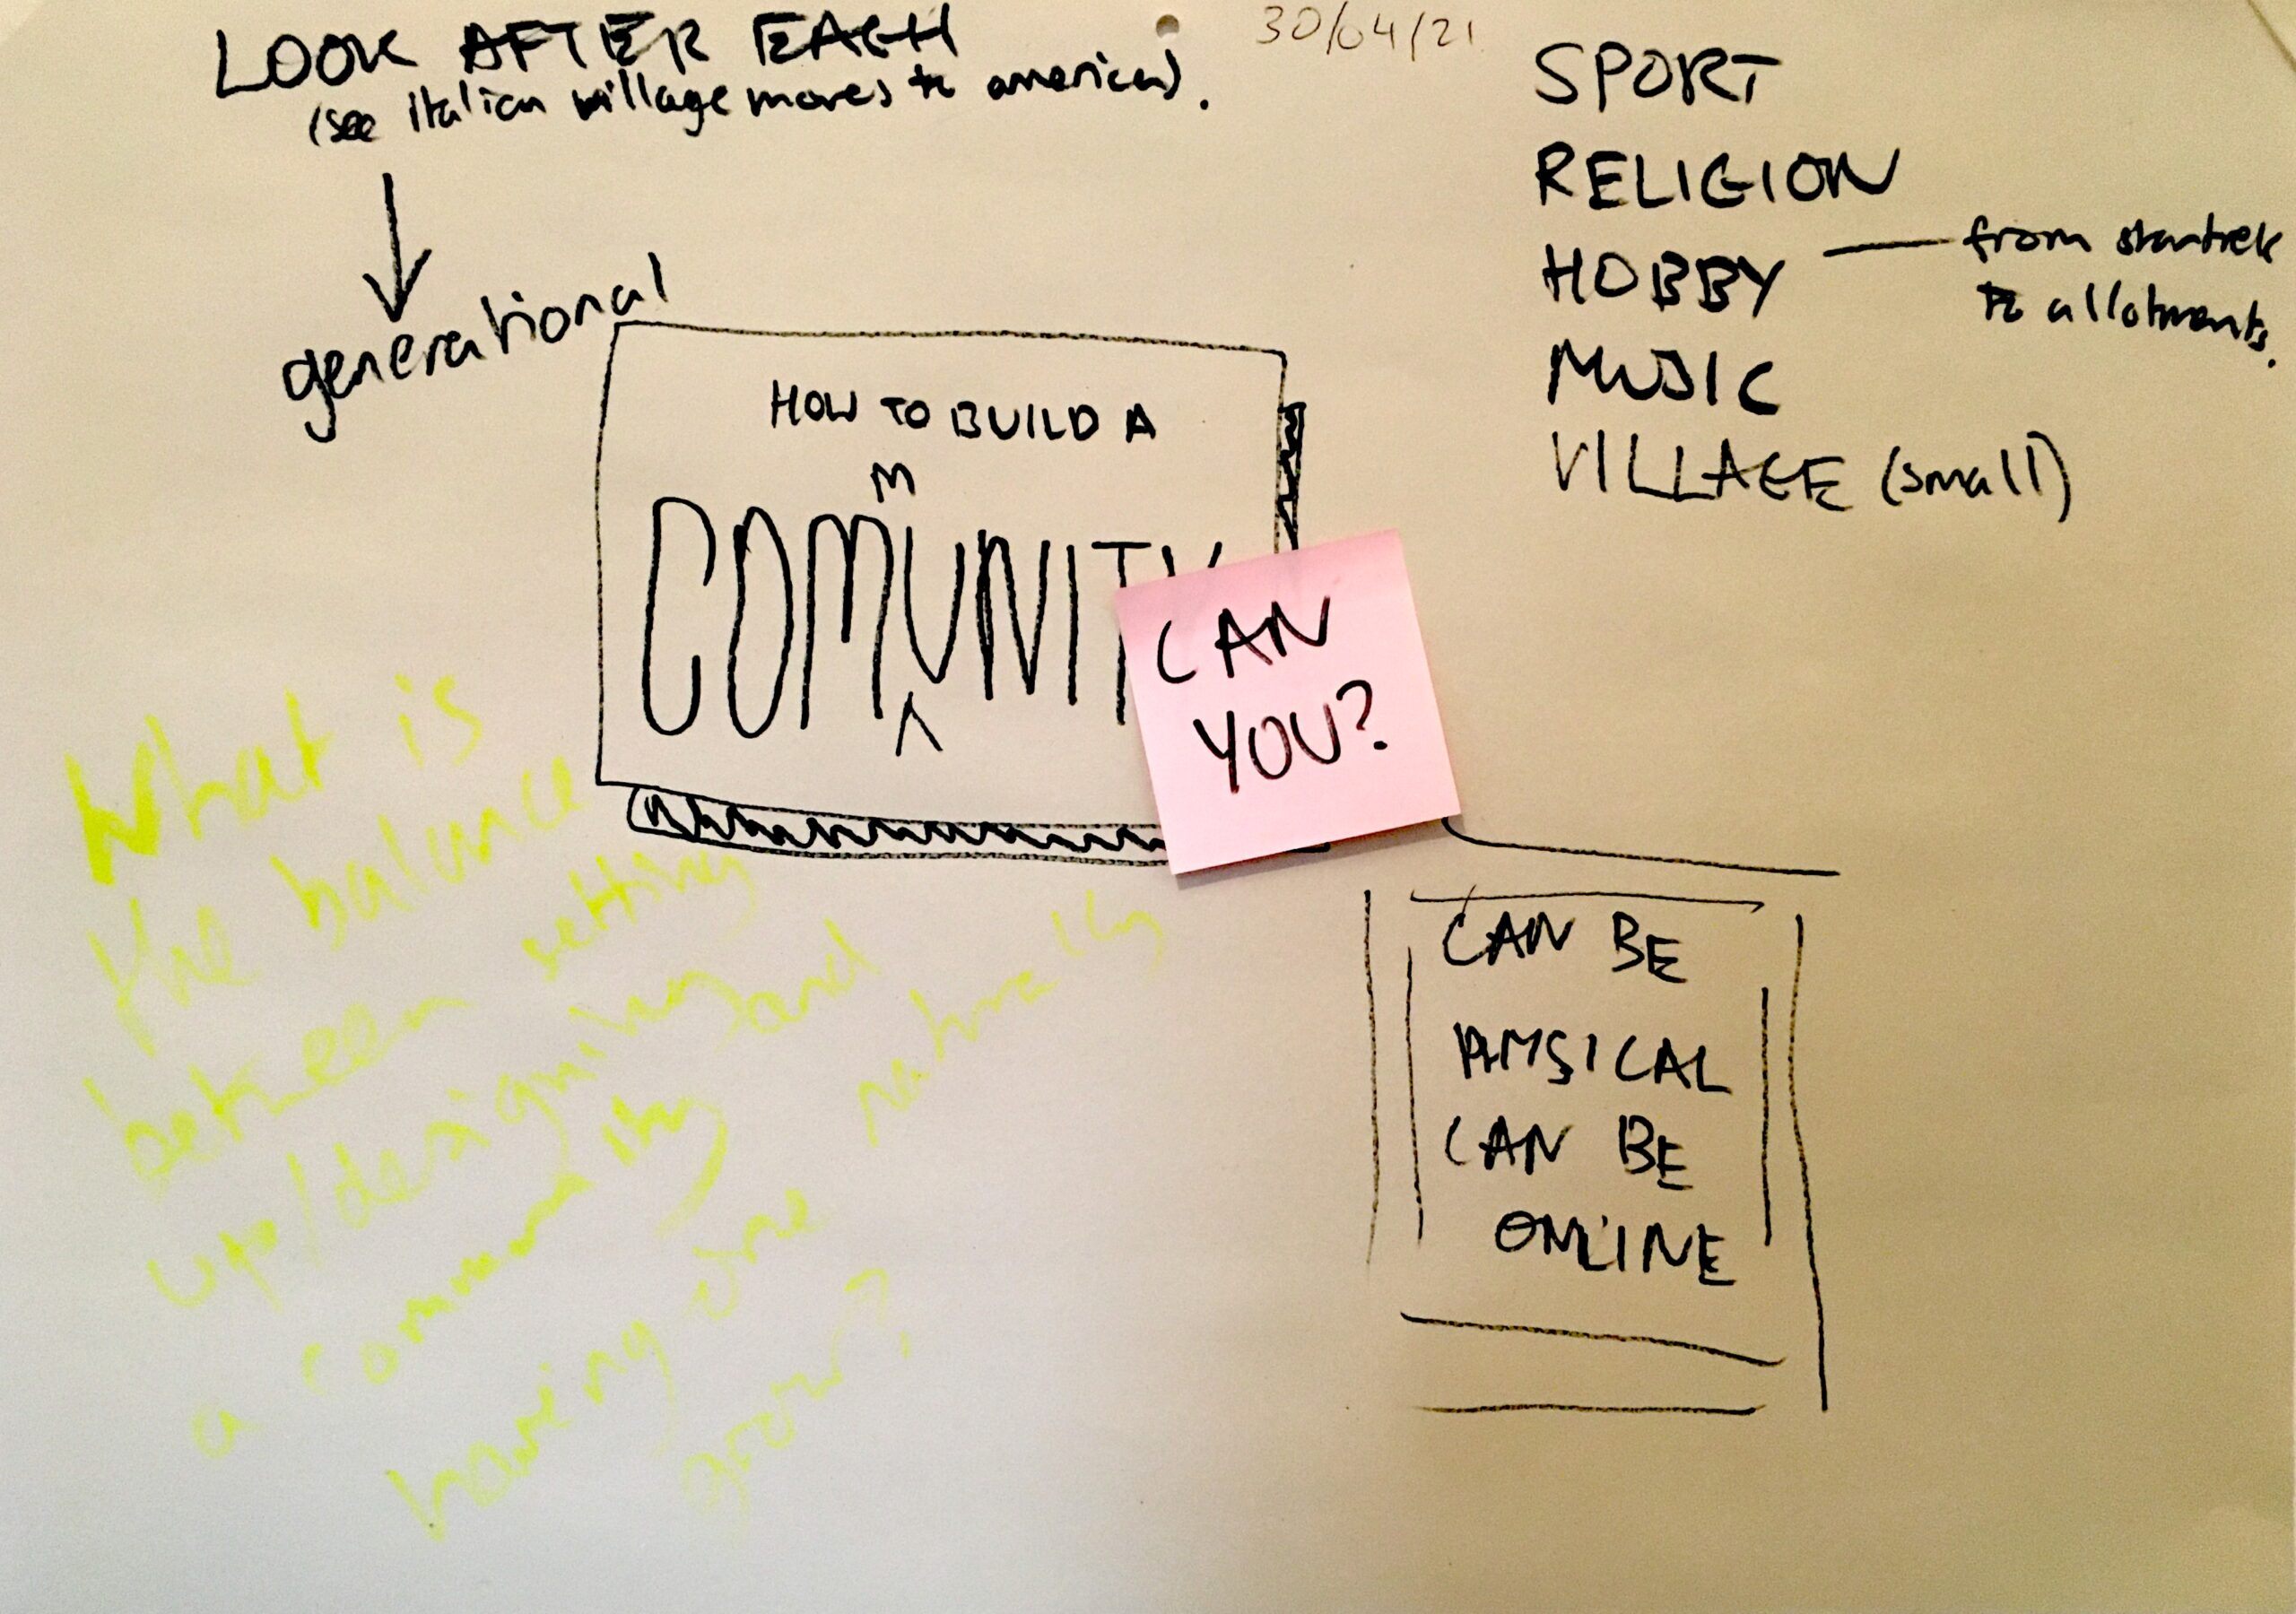 LOOK AFTER EACH
(see italian village moves to america).
30/04/21
generational
SPORT
RELIGION
HOBBY — from startrek
to allotments.
MUSIC
VILLAGE (small)
HOW TO BUILD A
COMMUNITY
CAN
YOU?
What is
the balance
between setting
up/designing
a community and
having one naturally
grow?
CAN BE
PHYSICAL
CAN BE
ONLINE